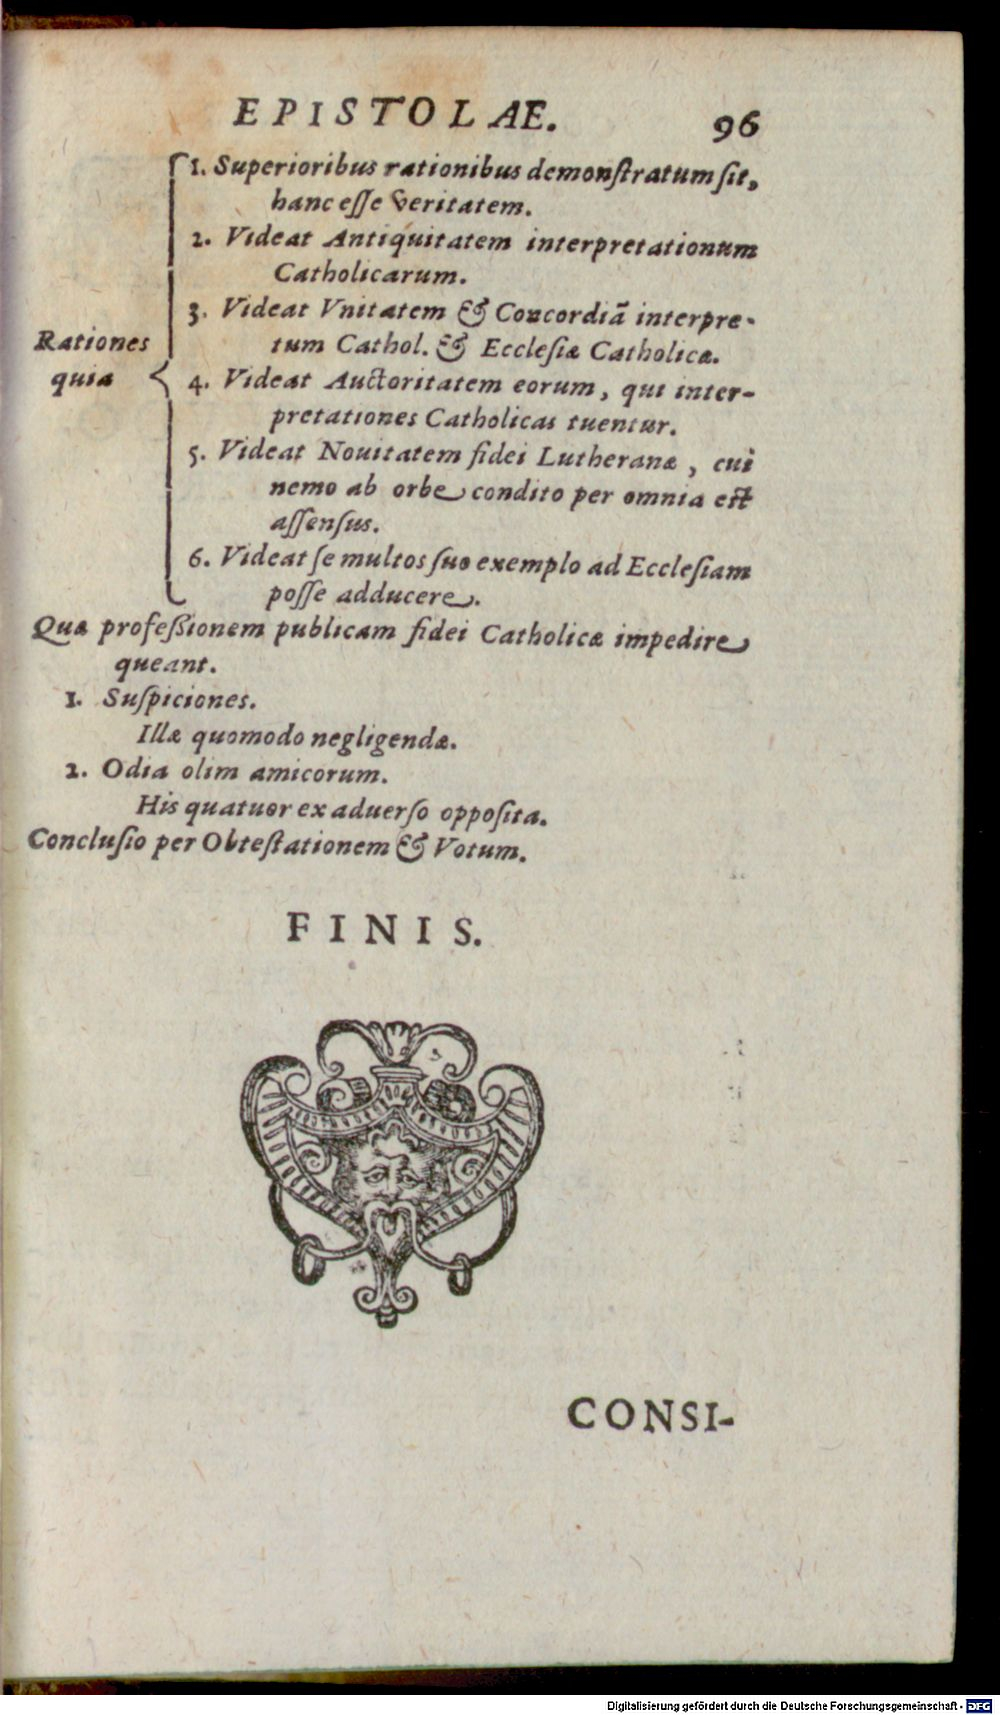 EPISTOLAE. 96
1. Superioribus rationibus demonſtratum ſit,
hanc eſſe veritatem.
2. Videat Antiquitatem interpretationum
Catholicarum.
3. Videat Vnitatem & Concordiã interpre-
tum Cathol. & Eccleſiæ Catholicæ.
Rationes
quia
4. Videat Auctoritatem eorum, qui inter-
pretationes Catholicas tuentur.
5. Videat Nouitatem fidei Lutheranæ, cui
nemo ab orbe condito per omnia eſt
aſſenſus.
6. Videat ſe multos ſuo exemplo ad Eccleſiam
poſſe adducere.
Quæ profeſsionem publicam fidei Catholicæ impedire
queant.
1. Suſpiciones.
Illæ quomodo negligendæ.
2. Odia olim amicorum.
His quatuor ex aduerſo oppoſita.
Concluſio per Obteſtationem & Votum.
FINIS.
CONSI-
Digitalisierung gefördert durch die Deutsche Forschungsgemeinschaft - DFG